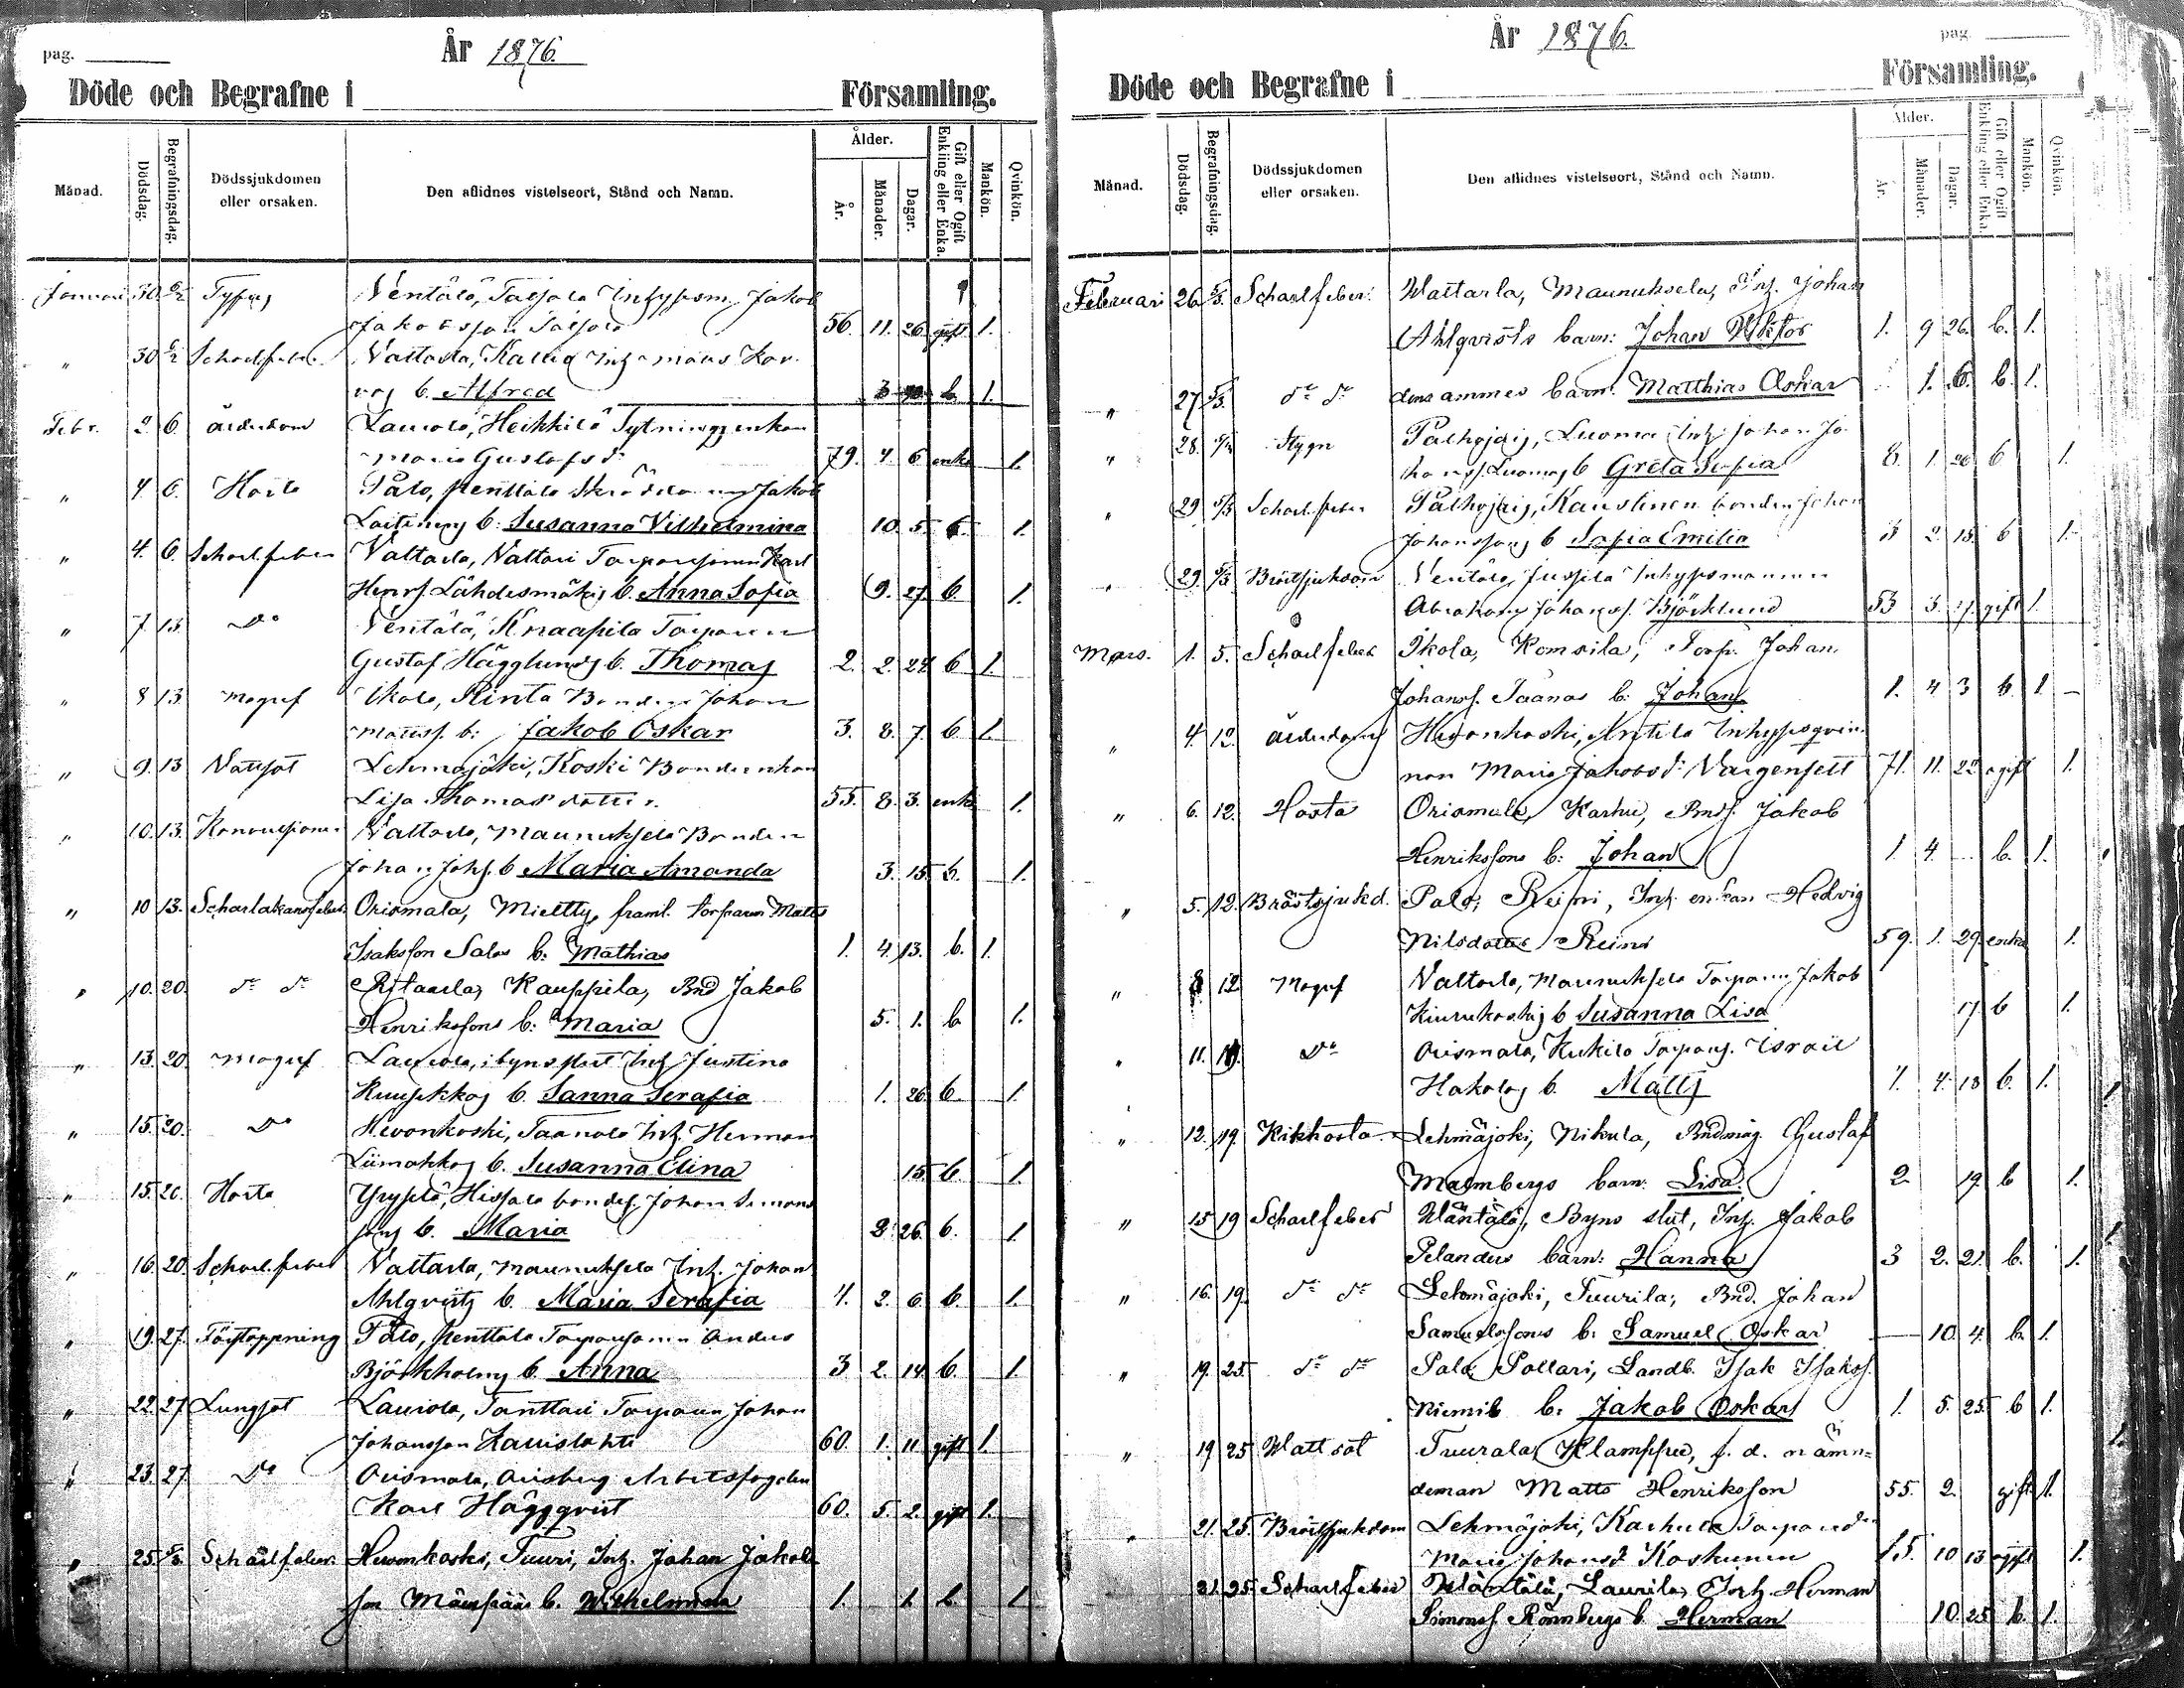 pag.
År 1876.
Döde och Begrafne i Församling.
Månad. Dödsdag. Begrafningsdag. Dödssjukdomen eller orsaken. Den aflidnes vistelseort, Stånd och Namn. Ålder. År. Månader. Dagar. Gift eller Ogift Enkling eller Enka. Mankön. Qvinkön.
Januari 30. 6/2 Typus Ventälä, Inhysesm. Jakob
Jakobsson 56. 11. 26. gift 1.
" 30 6/2 Scharlfeber Vattarla, Kallia Inh
b. Alfred 3 b. 1.
Febr. 2. 6. ålderdom Laurola, Heikkilä enkan
Maria Gustafsd. 79. 4 6 enka 1.
" 4 6. Hosta Palo, Penttala Jakob
b: Susanna Vilhelmina 10. 5. b. 1.
" 4. 6. Scharl.feber Vattarla, Vattari Karl
Henrs. Lähdesmäkis b. Anna Sofia 9. 27. b. 1.
" 7. 13. Do Ventälä, Knaapila Torparen
Gustaf Hägglunds b. Thomas 2. 2. 24 b 1.
" 8 13 magref Ikola, Rinta Bonden Johan
Mattss. b: Jakob Oskar 3. 8. 7. b 1.
" 9. 13 Vattsot Lehmäjoki, Koski Bondeenkan
Lisa Thomasdotter 55. 8. 3. enka 1.
" 10. 13. Konvulsioner Vattarla, Maunuksela Bonden
Johan Johs. b Maria Amanda 3. 15. b. 1.
" 10 13. Scharlakansfeber Orismala, Mieltty, framl. torparen Matts
Isaksson Salos b. Mathias 1. 4. 13. b. 1.
" 10. 20. do do Ritaarla, Kauppila, Bnd Jakob
Henrikssons b: Maria 5. 1. b 1.
" 13. 20. magref Laurola, i byns slut Inh Justina
b. Sanna Serafia 1. 26. b. 1.
" 15. 20. Do Hevonkoski, Taanola Inh. Herman
Liimakkas b. Susanna Elina 15 b. 1
" 15. 20. Hosta Yryplä, Hissala bondes. Johan Simons
sons b. Maria 2 26. b. 1
" 16. 20. Scharl.feber Vattarla, Maunuksela Inh. Johan
Ahlqvists b. Maria Serafia 4. 2. 6. b. 1.
" 19. 27. Förstoppning Palo, Penttala Torparesonen Anders
Björkholms b. Anna 3 2. 14. b. 1.
" 22. 27 Lungsot Laurola, Tanttari Torparen Johan
Johansson 60. 1. 11 gift 1.
" 23. 27 Do Orismala, Orisberg Arbetsfogden
Karl Häggqvist 60. 5. 2. gift 1.
" 25. 5/3 Scharlfeber Hevonkoski, Tuuri, Inh. Johan Jakobs
son Mäenpääs b. Wilhelmina 1. 1. b. 1
pag.
År 1876.
Döde och Begrafne i Församling.
Månad. Dödsdag. Begrafningsdag. Dödssjukdomen eller orsaken. Den aflidnes vistelseort, Stånd och Namn. Ålder. År. Månader. Dagar. Gift eller Ogift Enkling eller Enka. Mankön. Qvinkön.
Februari 26 5/3. Scharlfeber. Wattarla, Maunuksela, Inh. Johan
Ahlqvists barn: Johan Wiktor 1. 9 26. b. 1.
" 27 5/3. do do densammes barn. Matthias Oskar 1. 6. b. 1.
" 28. 5/3 Stygn Palhojais, Luoma Inh. Johan Jo
hanss. Luomas b Greta Sofia 8. 1. 26 b 1.
" 29 5/3 Scharl.feber Palhojais, Kaustinen bonden Johan
Johanssons b Sofia Emilia 3 2. 15. b 1.
" 29. 5/3 Bröstsjukdom Ventälä, Jussila Inhysesmannen
Abraham Johanss. Björklund 53 3. 17. gift 1.
Mars. 1. 5. Scharlfeber Ikola, Komsila, Torp. Johan
Johanss. Taanas b: Johan 1. 4. 3 b. 1.
" 4. 12. ålderdom Hevonkoski, Antila Inhysesqvin
nan Maria Jakobsd. Vargenfelt 71. 11. 22. ogift 1.
" 6. 12. Hosta Orismala, Karhu, Bnds. Jakob
Henrikssons b: Johan 1 4. b. 1.
" 5. 12. Bröstsjukd. Palo, Reini, Inh. enkan Hedvig
Nilsdotter Reini 59. 1. 29. enka 1.
" 8 12 Magref Vattarla, Maunuksela Torparen Jakob
Kiurukoskis b Susanna Lisa 17. b 1.
" 11. 19. Do Orismala, Kukila Torpares. Israel
Hakolas b. Matts 4. 18 b. 1.
" 12. 19. Kikhosta Lehmäjoki, Nikula, Bndmåg. Gustaf
Malmbergs barn: Lisa. 2 19. b 1.
" 15 19 Scharlfeber Wäntälä, Byns slut, Inh. Jakob
Pelanders barn: Hanna 3 2. 21. b. 1.
" 16. 19. do do Lehmäjoki, Tuurila, Bnd. Johan
Samuelssons b: Samuel Oskar 10. 4. b. 1.
" 19. 25. do do Palo Pollari, Landb. Isak Isakss.
Niemis b: Jakob Oskar 1. 5. 25. b 1.
" 19 25 Wattsot Tuurala, Klamppu, f. d. näm=
deman Matts Henriksson 55. 2. gift 1.
" 21. 25. Bröstsjukdom Lehmäjoki, Karhula
Maria Johansd. Koskinen 15. 10 13 ogift 1.
21. 25. Scharlfeber Wäntälä, Laurila, Inh. Herman
Simonss. Rönnbergs b. Herman 10. 25. b. 1.